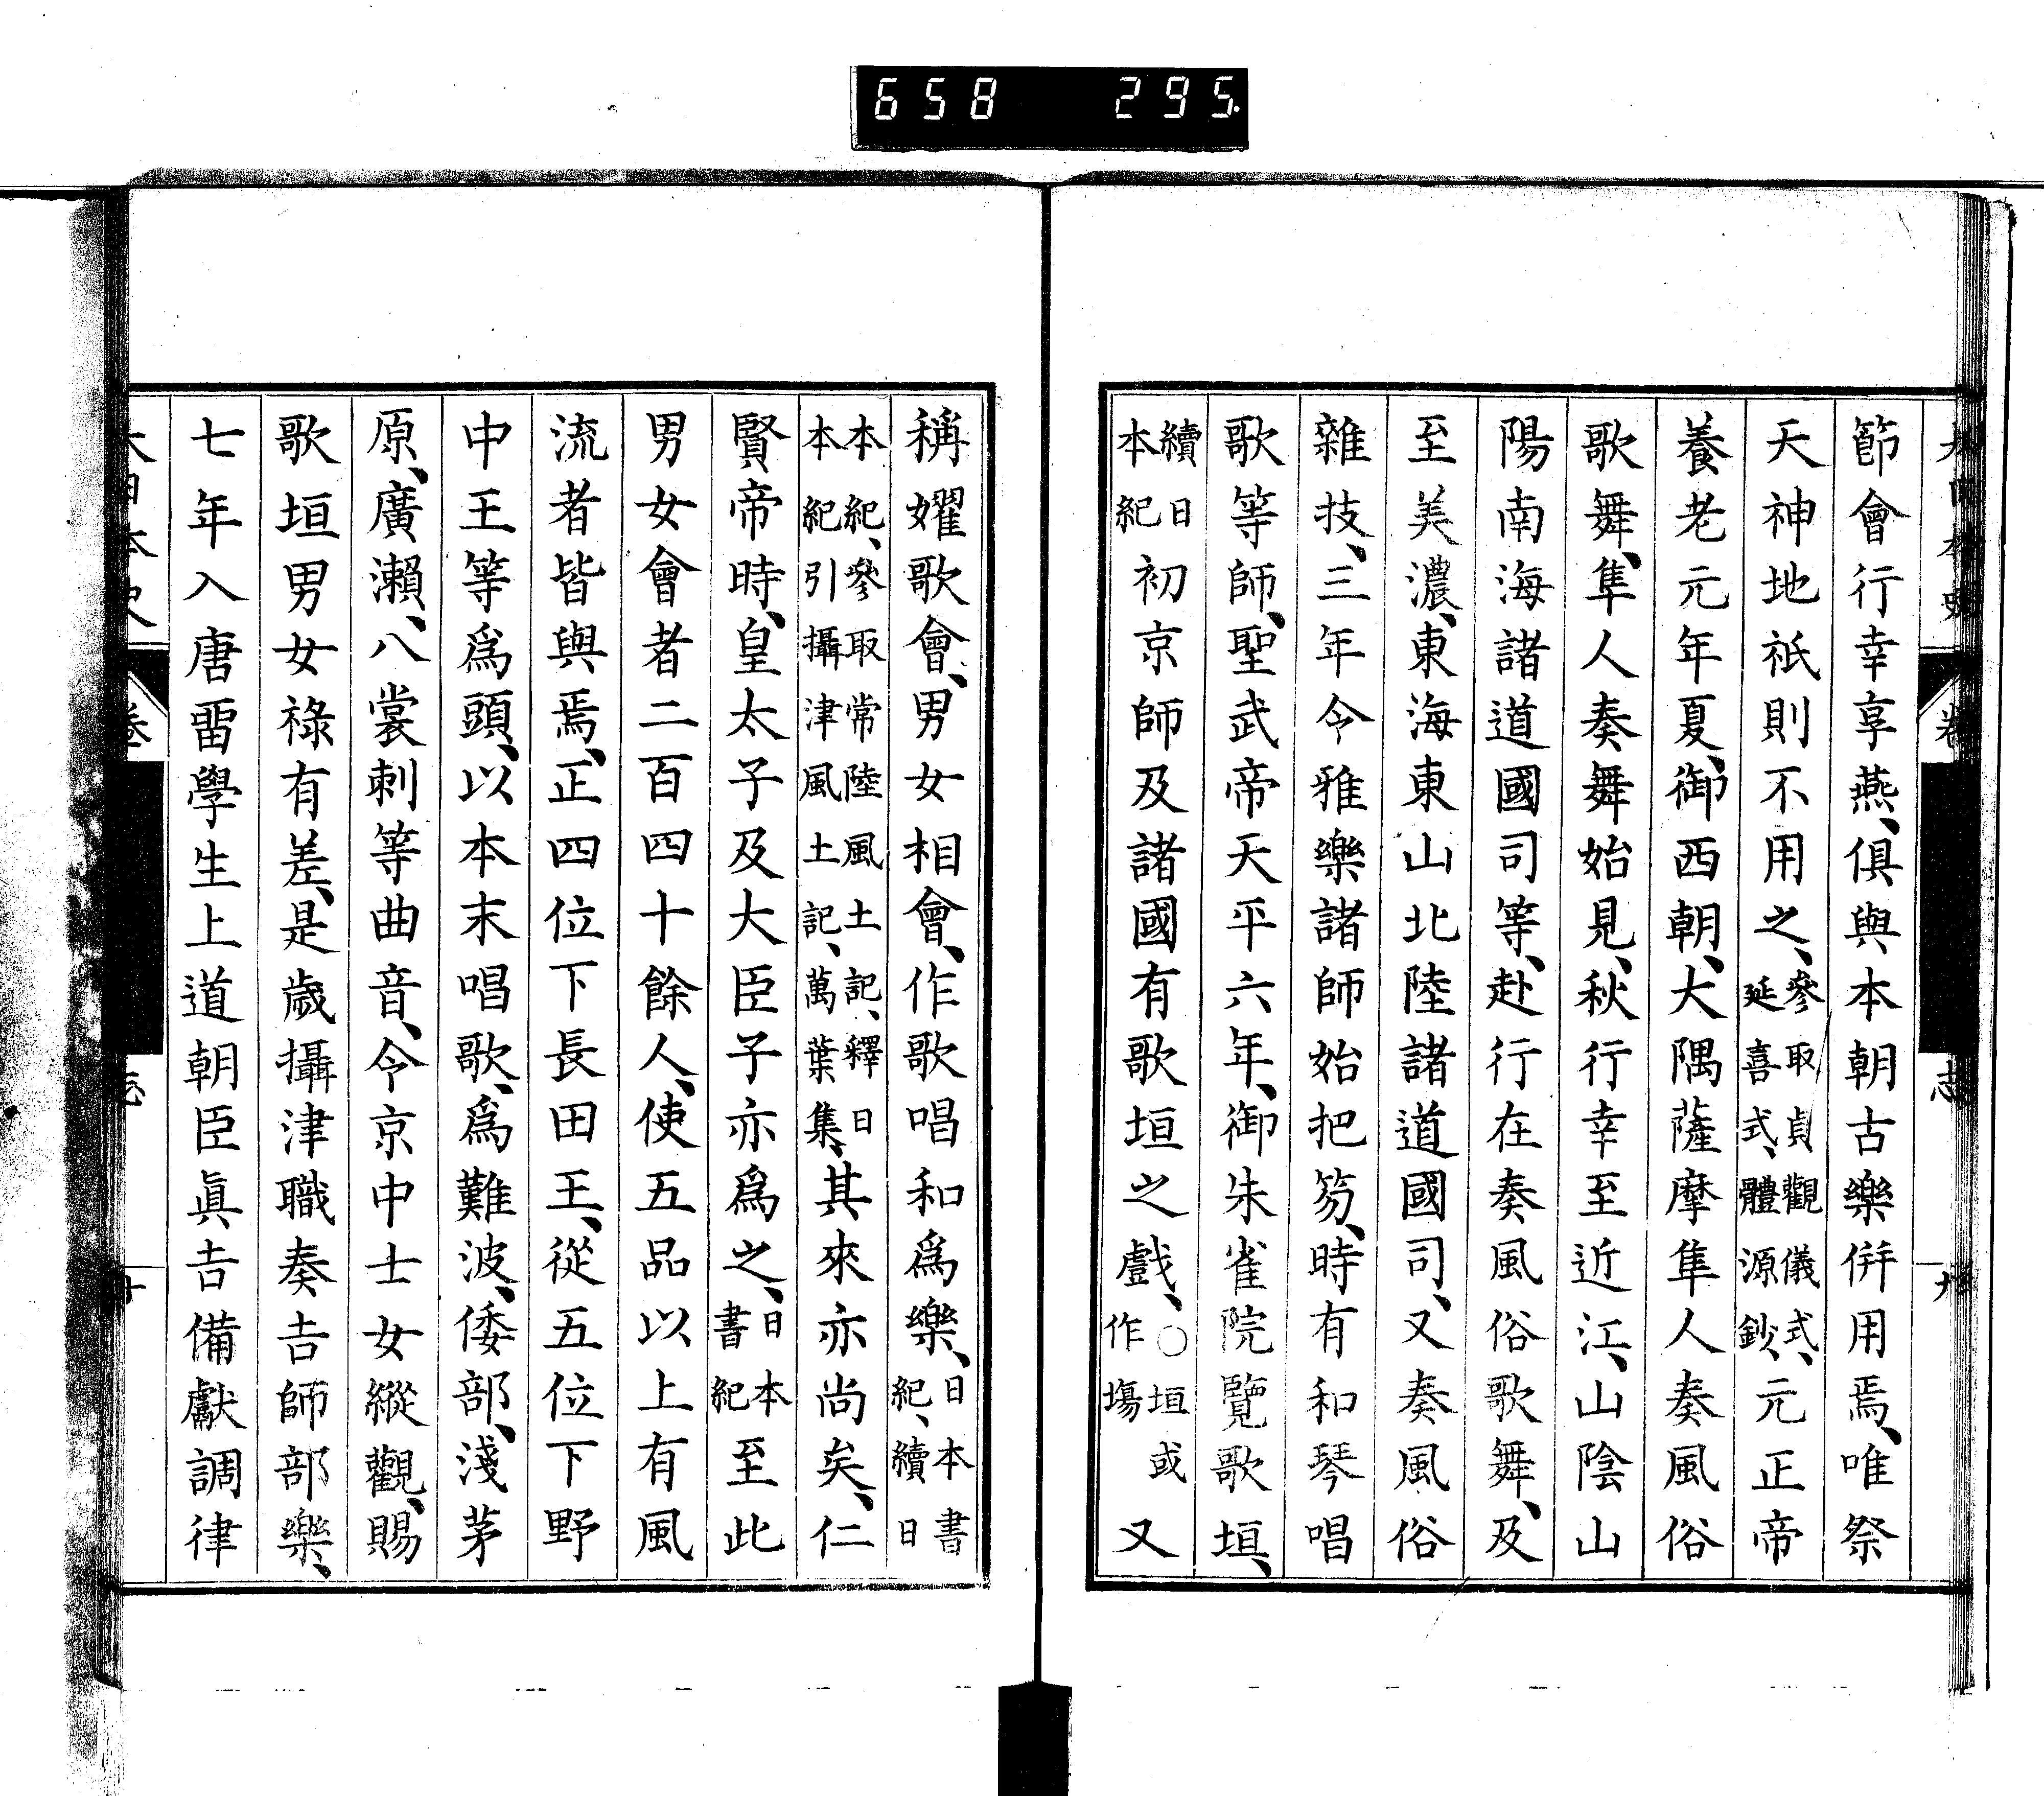 658 295.
節會行幸享燕、俱與本朝古樂併用焉、唯祭
天神地祇則不用之、參取貞觀儀式、延喜式、體源鈔、元正帝
養老元年夏、御西朝、大隅薩摩隼人奏風俗
歌舞、隼人奏舞始見、秋行幸至近江、山陰山
陽南海諸道國司等、赴行在奏風俗歌舞、及
至美濃、東海東山北陸諸道國司、又奏風俗
雜技、三年令雅樂諸師始把笏、時有和琴唱
歌等師、聖武帝天平六年、御朱雀院覽歌垣、
續日本紀初京師及諸國有歌垣之戲、○垣或作塲又
稱嬥歌會、男女相會、作歌唱和爲樂、日本書紀、續日
本紀、參取常陸風土記、釋日本紀引攝津風土記、萬葉集、其來亦尚矣、仁
賢帝時、皇太子及大臣子亦爲之、日本書紀至此
男女會者二百四十餘人、使五品以上有風
流者皆與焉、正四位下長田王、從五位下野
中王等爲頭、以本末唱歌、爲難波、倭部、淺茅
原、廣瀨、八裳刺等曲音、令京中士女縱觀、賜
歌垣男女祿有差、是歲攝津職奏吉師部樂、
七年入唐畱學生上道朝臣眞吉備獻調律